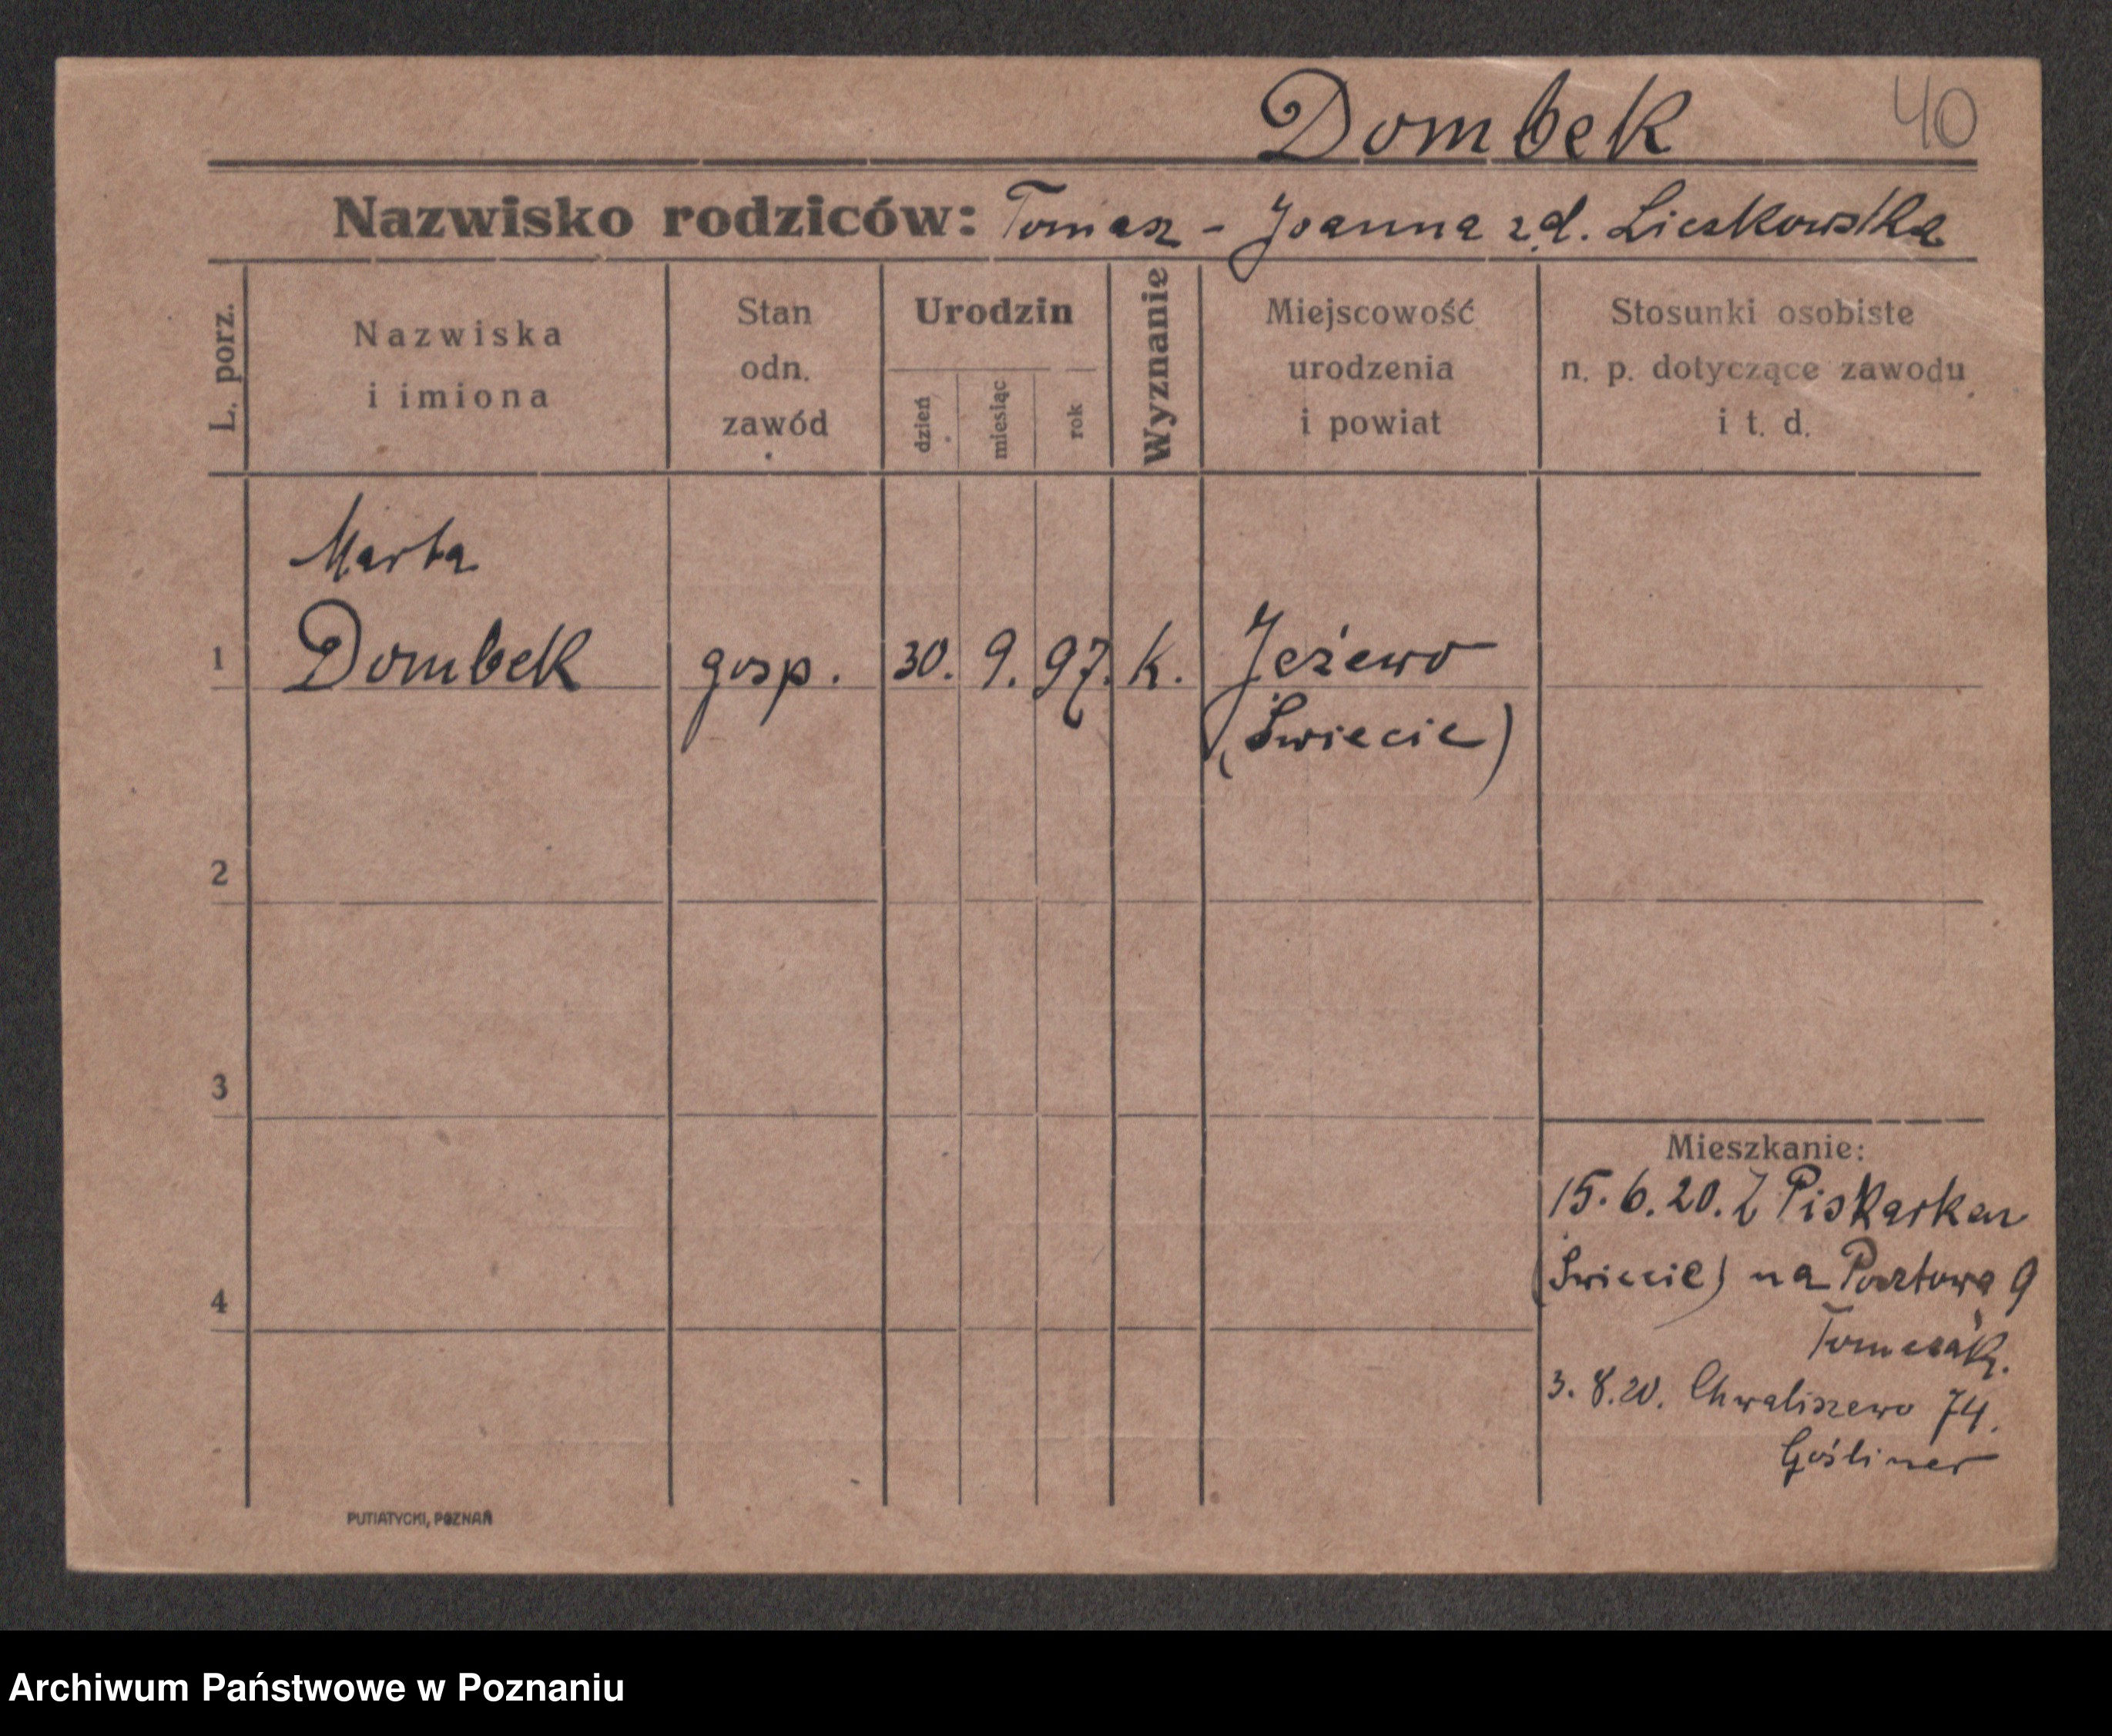 Dombek 40
Nazwisko rodziców: Tomasz - Joanna z d. Lieskowska
L. porz.
Nazwiska
i imiona
Stan
odn.
zawód
Urodzin
dzień
miesiąc
rok
Wyznanie
Miejscowość
urodzenia
i powiat
Stosunki osobiste
n. p. dotyczące zawodu
i t. d.
Marta
1 Dombek gosp. 30. 9. 97. k. Jeżewo
(Świecie)
2
3
4
Mieszkanie:
15.6.20. Z Piskarken
(Świecie) na Pocztowa 9
Tomczak.
3.8.20. Chwaliszewo 74.
Gośliner
PUTIATYCKI, POZNAŃ
Archiwum Państwowe w Poznaniu